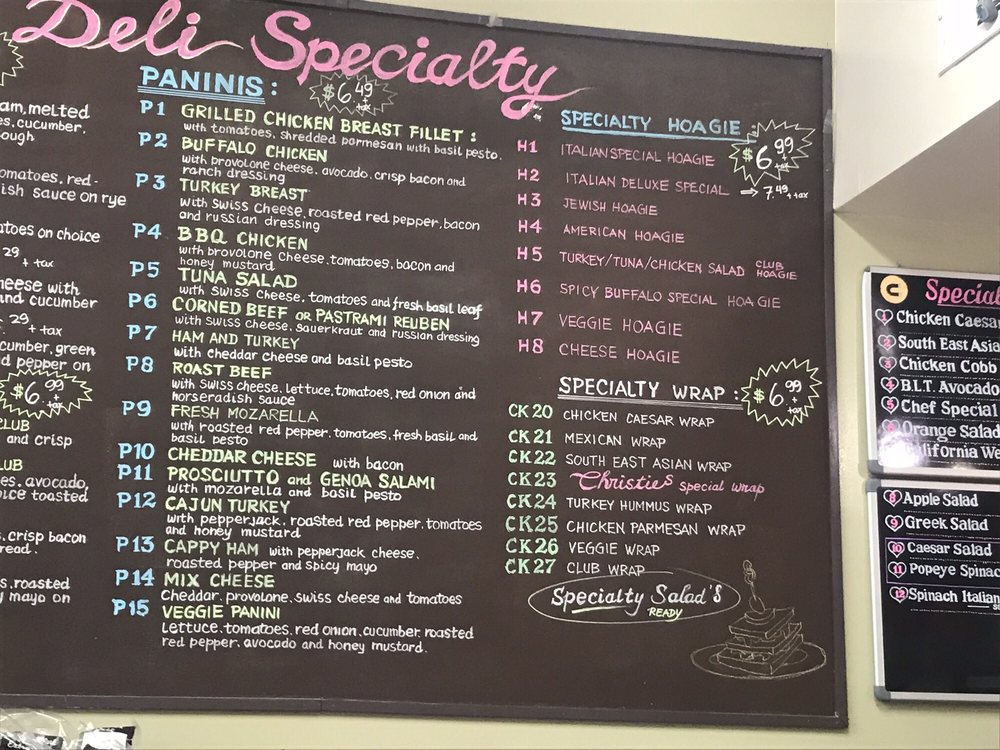 Deli Specialty
am, melted
es, cucumber,
ough
omatoes, red-
ish sauce on rye
atoes on choice
29 + tax
heese with
and cucumber
29 + tax
cumber, green
d pepper on
$6.99 + tax
CLUB
and crisp
LUB
es, avocado,
oice toasted
s, crisp bacon
read.
s, roasted
y mayo on
PANINIS: $6.49 + tax
P1 GRILLED CHICKEN BREAST FILLET:
with tomatoes, shredded parmesan with basil pesto.
P2 BUFFALO CHICKEN
with provolone cheese, avocado, crisp bacon and
ranch dressing
P3 TURKEY BREAST
with Swiss Cheese, roasted red pepper, bacon
and russian dressing
P4 BBQ CHICKEN
with provolone cheese, tomatoes, bacon and
honey mustard
P5 TUNA SALAD
with Swiss cheese, tomatoes and fresh basil leaf
P6 CORNED BEEF OR PASTRAMI REUBEN
with Swiss cheese, sauerkraut and russian dressing
P7 HAM AND TURKEY
with cheddar cheese and basil pesto
P8 ROAST BEEF
with Swiss cheese, lettuce, tomatoes, red onion and
horseradish sauce
P9 FRESH MOZARELLA
with roasted red pepper, tomatoes, fresh basil and
basil pesto
P10 CHEDDAR CHEESE with bacon
P11 PROSCIUTTO and GENOA SALAMI
with mozarella and basil pesto
P12 CAJUN TURKEY
with pepperjack, roasted red pepper, tomatoes
and honey mustard
P13 CAPPY HAM with pepperjack cheese,
roasted pepper and spicy mayo
P14 MIX CHEESE
Cheddar, provolone, swiss cheese and tomatoes
P15 VEGGIE PANINI
Lettuce, tomatoes, red onion, cucumber, roasted
red pepper, avocado and honey mustard.
SPECIALTY HOAGIE: $6.99 + tax
H1 ITALIAN SPECIAL HOAGIE
H2 ITALIAN DELUXE SPECIAL ⇒ 7.49 + tax
H3 JEWISH HOAGIE
H4 AMERICAN HOAGIE
H5 TURKEY/TUNA/CHICKEN SALAD CLUB HOAGIE
H6 SPICY BUFFALO SPECIAL HOAGIE
H7 VEGGIE HOAGIE
H8 CHEESE HOAGIE
SPECIALTY WRAP: $6.99 + tax
CK20 CHICKEN CAESAR WRAP
CK21 MEXICAN WRAP
CK22 SOUTH EAST ASIAN WRAP
CK23 Christies special wrap
CK24 TURKEY HUMMUS WRAP
CK25 CHICKEN PARMESAN WRAP
CK26 VEGGIE WRAP
CK27 CLUB WRAP
Specialty Salad's
READY
C Special
1 Chicken Caesar
2 South East Asia
3 Chicken Cobb
4 B.L.T. Avocado
5 Chef Special
6 Orange Salad
California We
8 Apple Salad
9 Greek Salad
10 Caesar Salad
11 Popeye Spinac
12 Spinach Italian